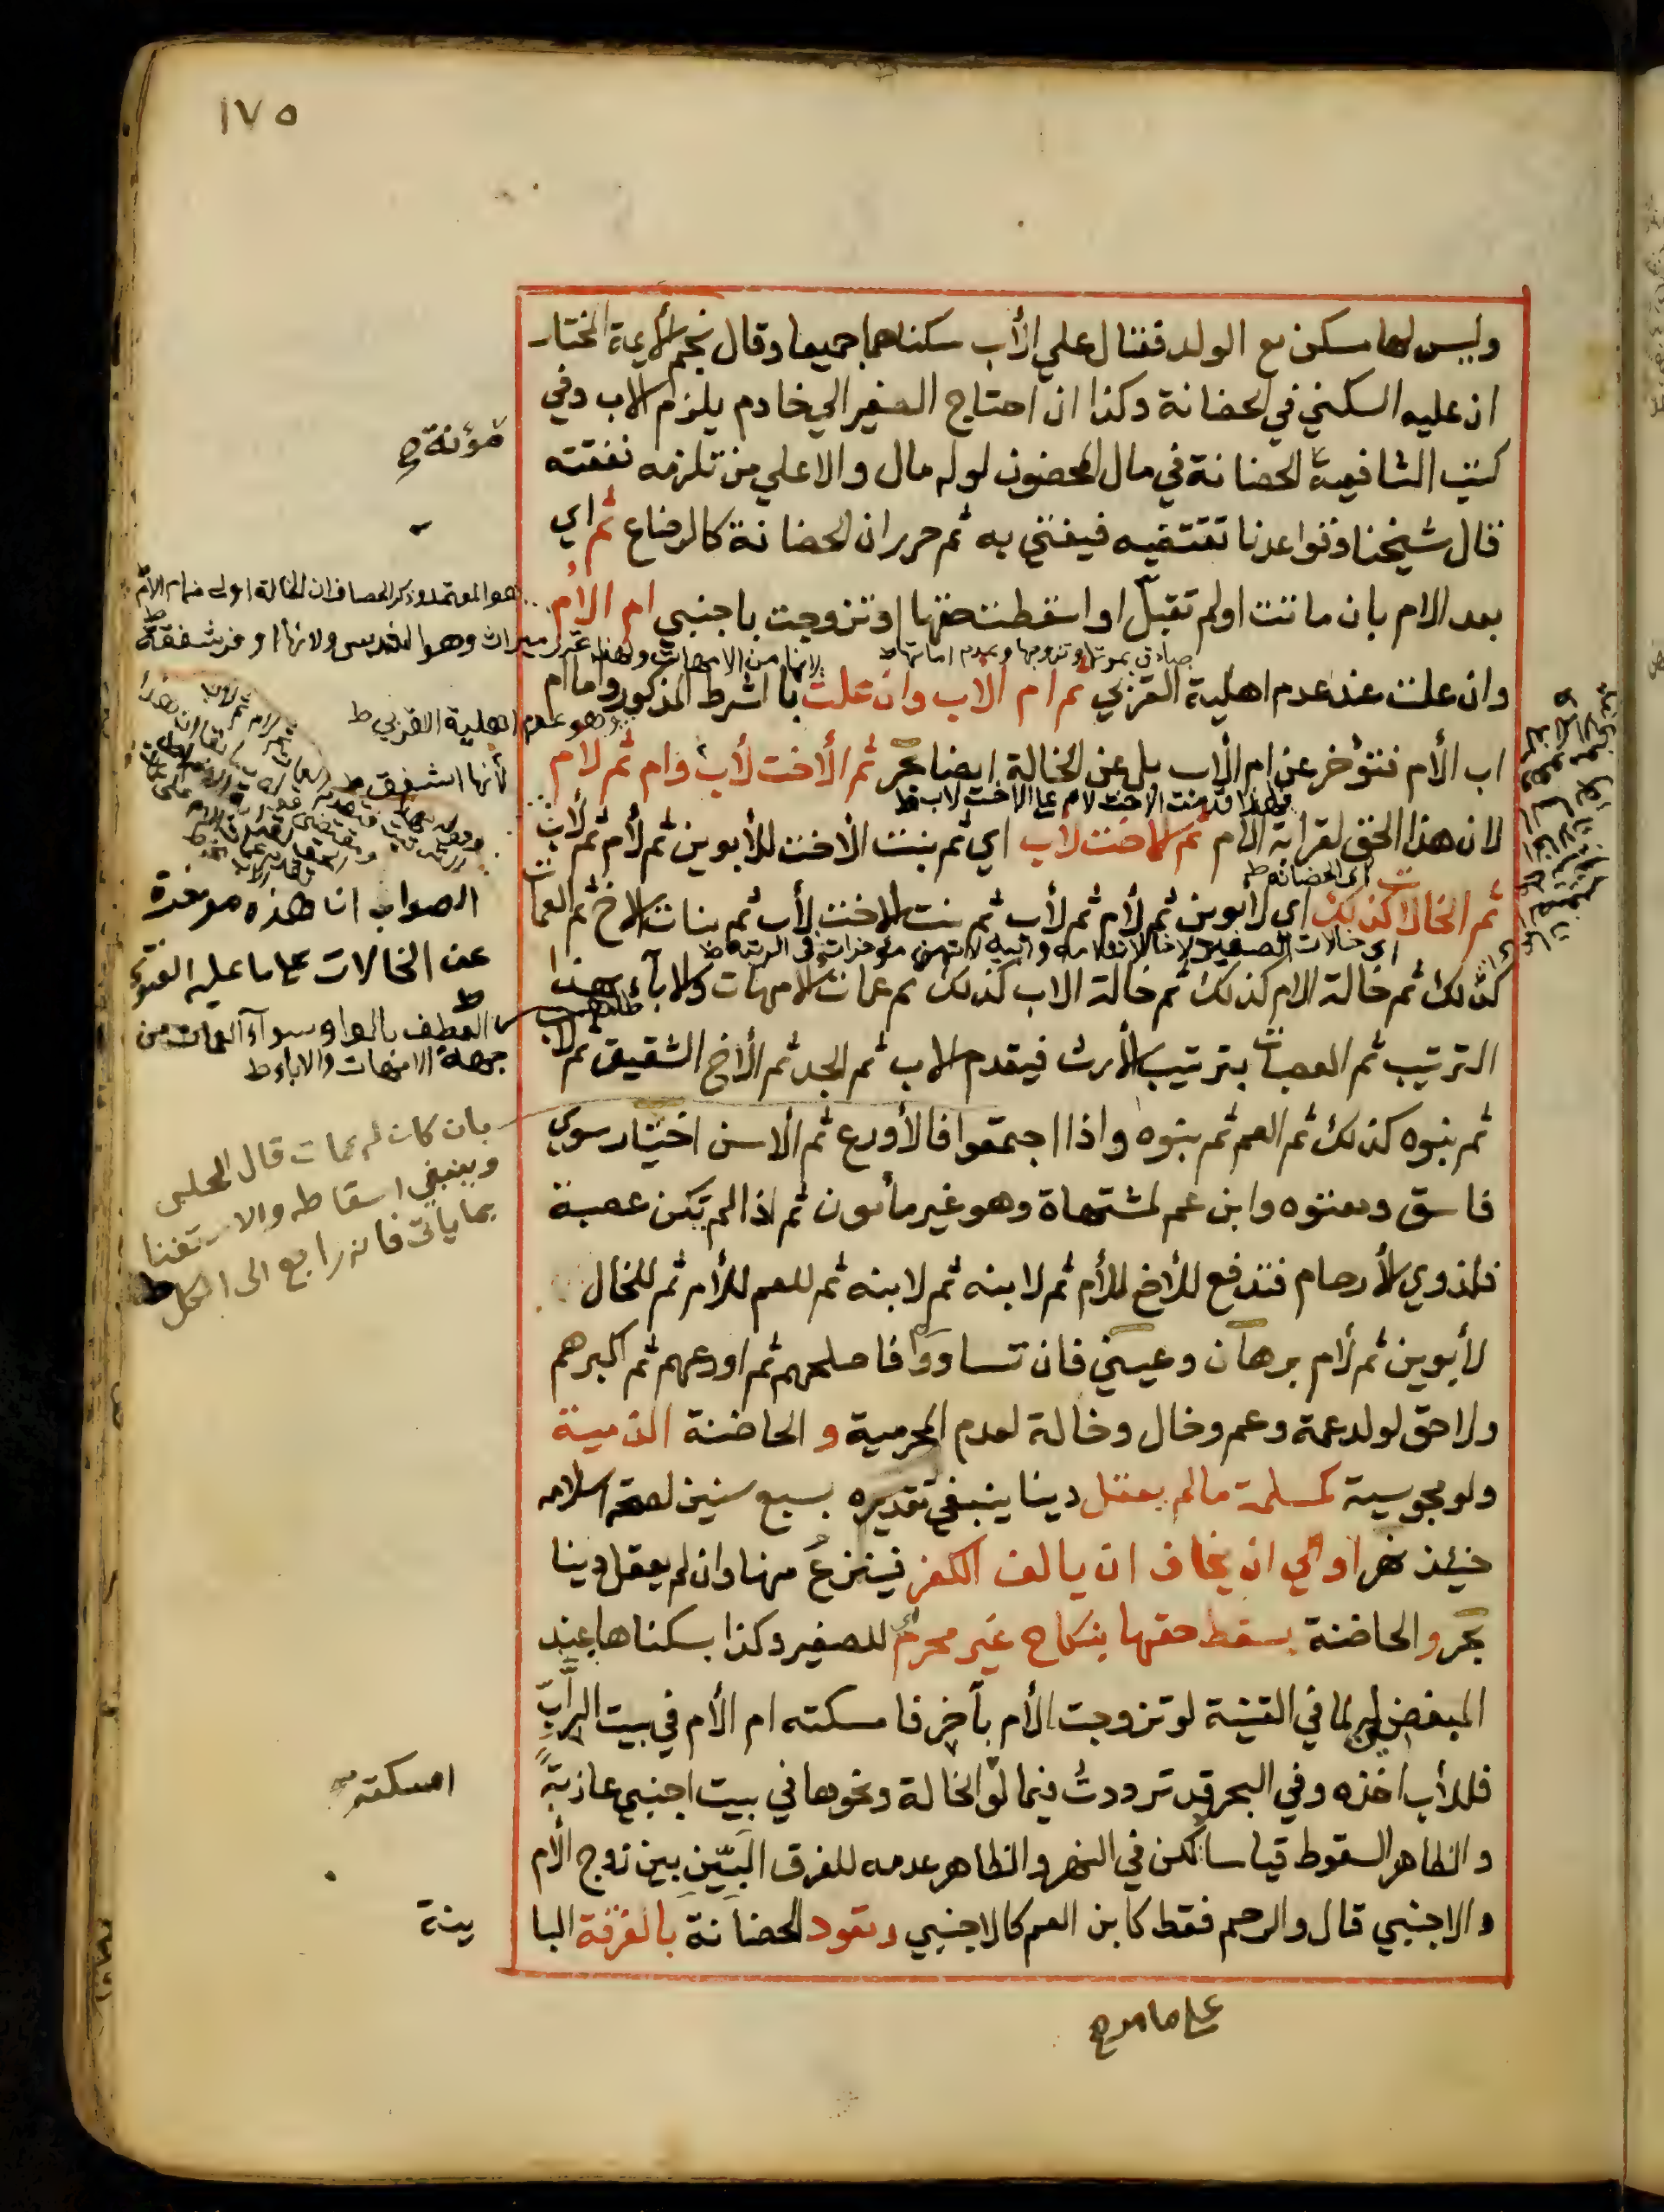 ١٧٥
وليس لها مسكن مع الولد فقال علي الأب سكناهما جميعا وقال نجم الأيمة المختار
ان عليه السكني في الحضانة وكذا ان احتاج الصغير الي خادم يلزم الاب وفي
كتب الشافعية الحضانة في مال المحضون لو له مال والا علي من تلزمه نفقته
قال شيخنا وقواعدنا تقتضيه فيفتي به ثم حرر ان الحضانة كالرضاع ثم اي
بعد الام بان ماتت او لم تقبل او اسقطت حقها او تزوجت باجنبي ام الأم
وان علت عند عدم اهلية القربي ثم ام الاب وان علت بالشرط المذكور واما ام
اب الأم فتؤخر عن ام الأب بل عن الخالة ايضا بحر ثم الأخت لأب وام ثم لام
لان هذا الحق لقرابة الام ثم الاخت لأب اي ثم بنت الاخت للأبوين ثم لأم ثم لأب
ثم الخالات كذلك اي لابوين ثم لأم ثم لأب ثم بنت الاخت لأب ثم بنات الاخ ثم العمات
كذلك ثم خالة الام كذلك ثم خالة الاب كذلك ثم عمات الامهات والاباء بهذا
الترتيب ثم العصبات بترتيب الأرث فيقدم الاب ثم الجد ثم الأخ الشقيق ثم لاب
ثم بنوه كذلك ثم العم ثم بنوه واذا اجتمعوا فالأورع ثم الاسن اختيار سوي
فاسق ومعتوه وابن عم لمشتهاة وهو غير مأمون ثم اذا لم تكن عصبة
فلذوي الأرحام فتدفع للأخ للأم ثم لابنه ثم لابنه ثم للعم للأم ثم للخال
لأبوين ثم لأم برهان وعيني فان تساووا فاصلحهم ثم اورعهم ثم اكبرهم
ولاحق لولد عمة وعم وخال وخالة لعدم المحرمية و الحاضنة الذمية
ولو مجوسية كمسلمة مالم يعقل دينا ينبغي تقديره بسبع سنين لصحة اسلامه
حينئذ نهر او الي ان يخاف ان يالف الكفر فينزع منها وان لم يعقل دينا
بحر و الحاضنة يسقط حقها بنكاح غير محرم اي للصغير وكذا بسكناها عند
المبغضين له لما في القنية لو تزوجت الأم بآخر فامسكته ام الأم في بيت الرابّ
فللأب اخذه وفي البحر قد ترددت فيما لو الخالة ونحوها في بيت اجنبي عاذبة
والظاهر السقوط قياسا لكن في النهر والظاهر عدمه للفرق البيّن بين زوج الأم
والاجنبي قال والرحم فقط كابن العم كالاجنبي وتعود الحضانة بالفرقة البا
ينة
على ما مر ح
مؤنة ح
هو المعتمد وذكر الخصاف ان الخالة اولى من ام الأم
وهو عدم اهلية القربي ط
لأنها اشفق ط
فلهذا قدمت الاخت لام على الاخت لاب ط
اي الحضانة ط
الصواب ان هذه موخرة
عن الخالات على ما عليه الفتوى
العطف بالواو سواء العمات من
جهة الامهات والاباء ط
قال الحلبي
وينبغي اسقاطه والاستغنا
بما ياتي فانه راجع الى الكل ط
امسكته